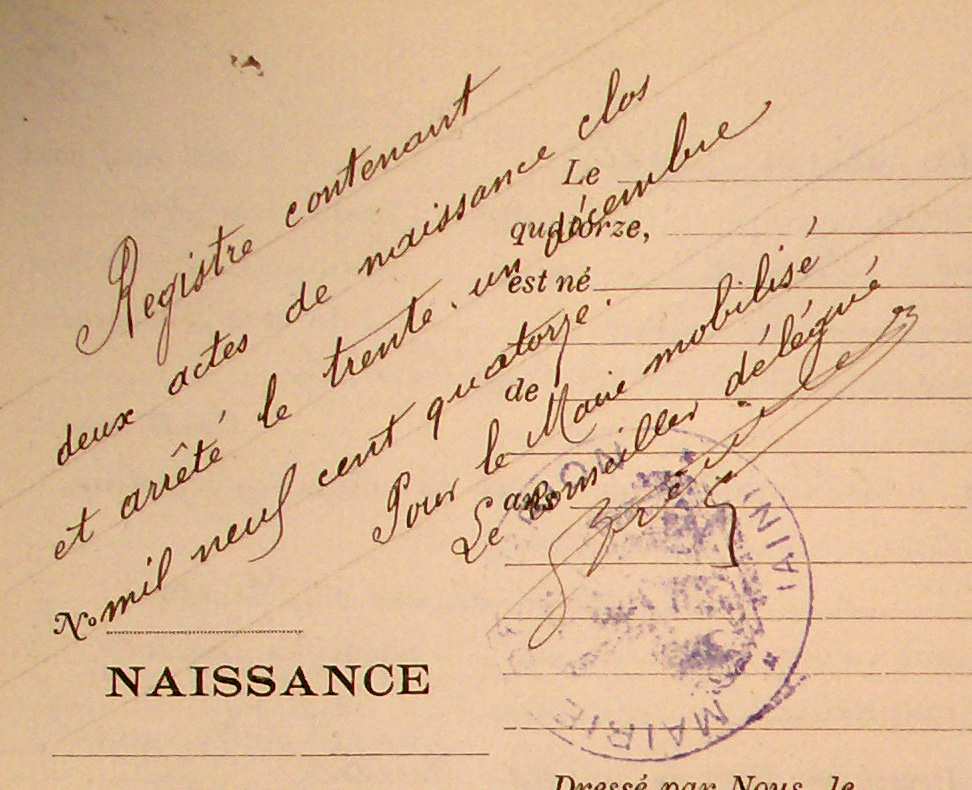 Registre contenant
deux actes de naissance clos
et arrêté le trente. un décembre
mil neuf cent quatorze.
Pour le Maire mobilisé
Le Conseiller délégué
Le
quatorze,
est né
de
No
NAISSANCE
MAIRIE
(AIN)
Dressé par Nous, le